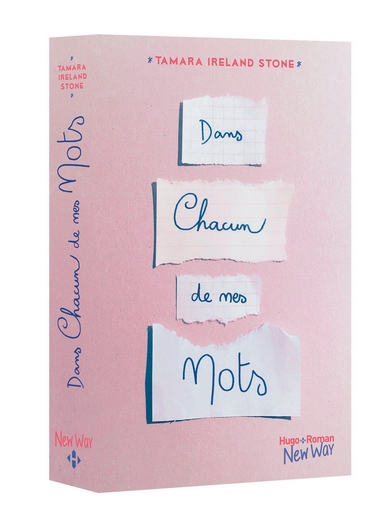 TAMARA
IRELAND
STONE
Dans Chacun de mes Mots
New Way
H
*TAMARA IRELAND STONE*
Dans
Chacun
de mes
Mots
Hugo+Roman
New Way